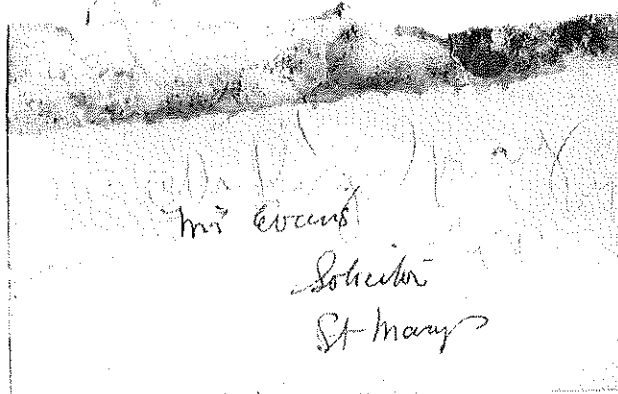 Mr Evans
Solicitor
St Marys